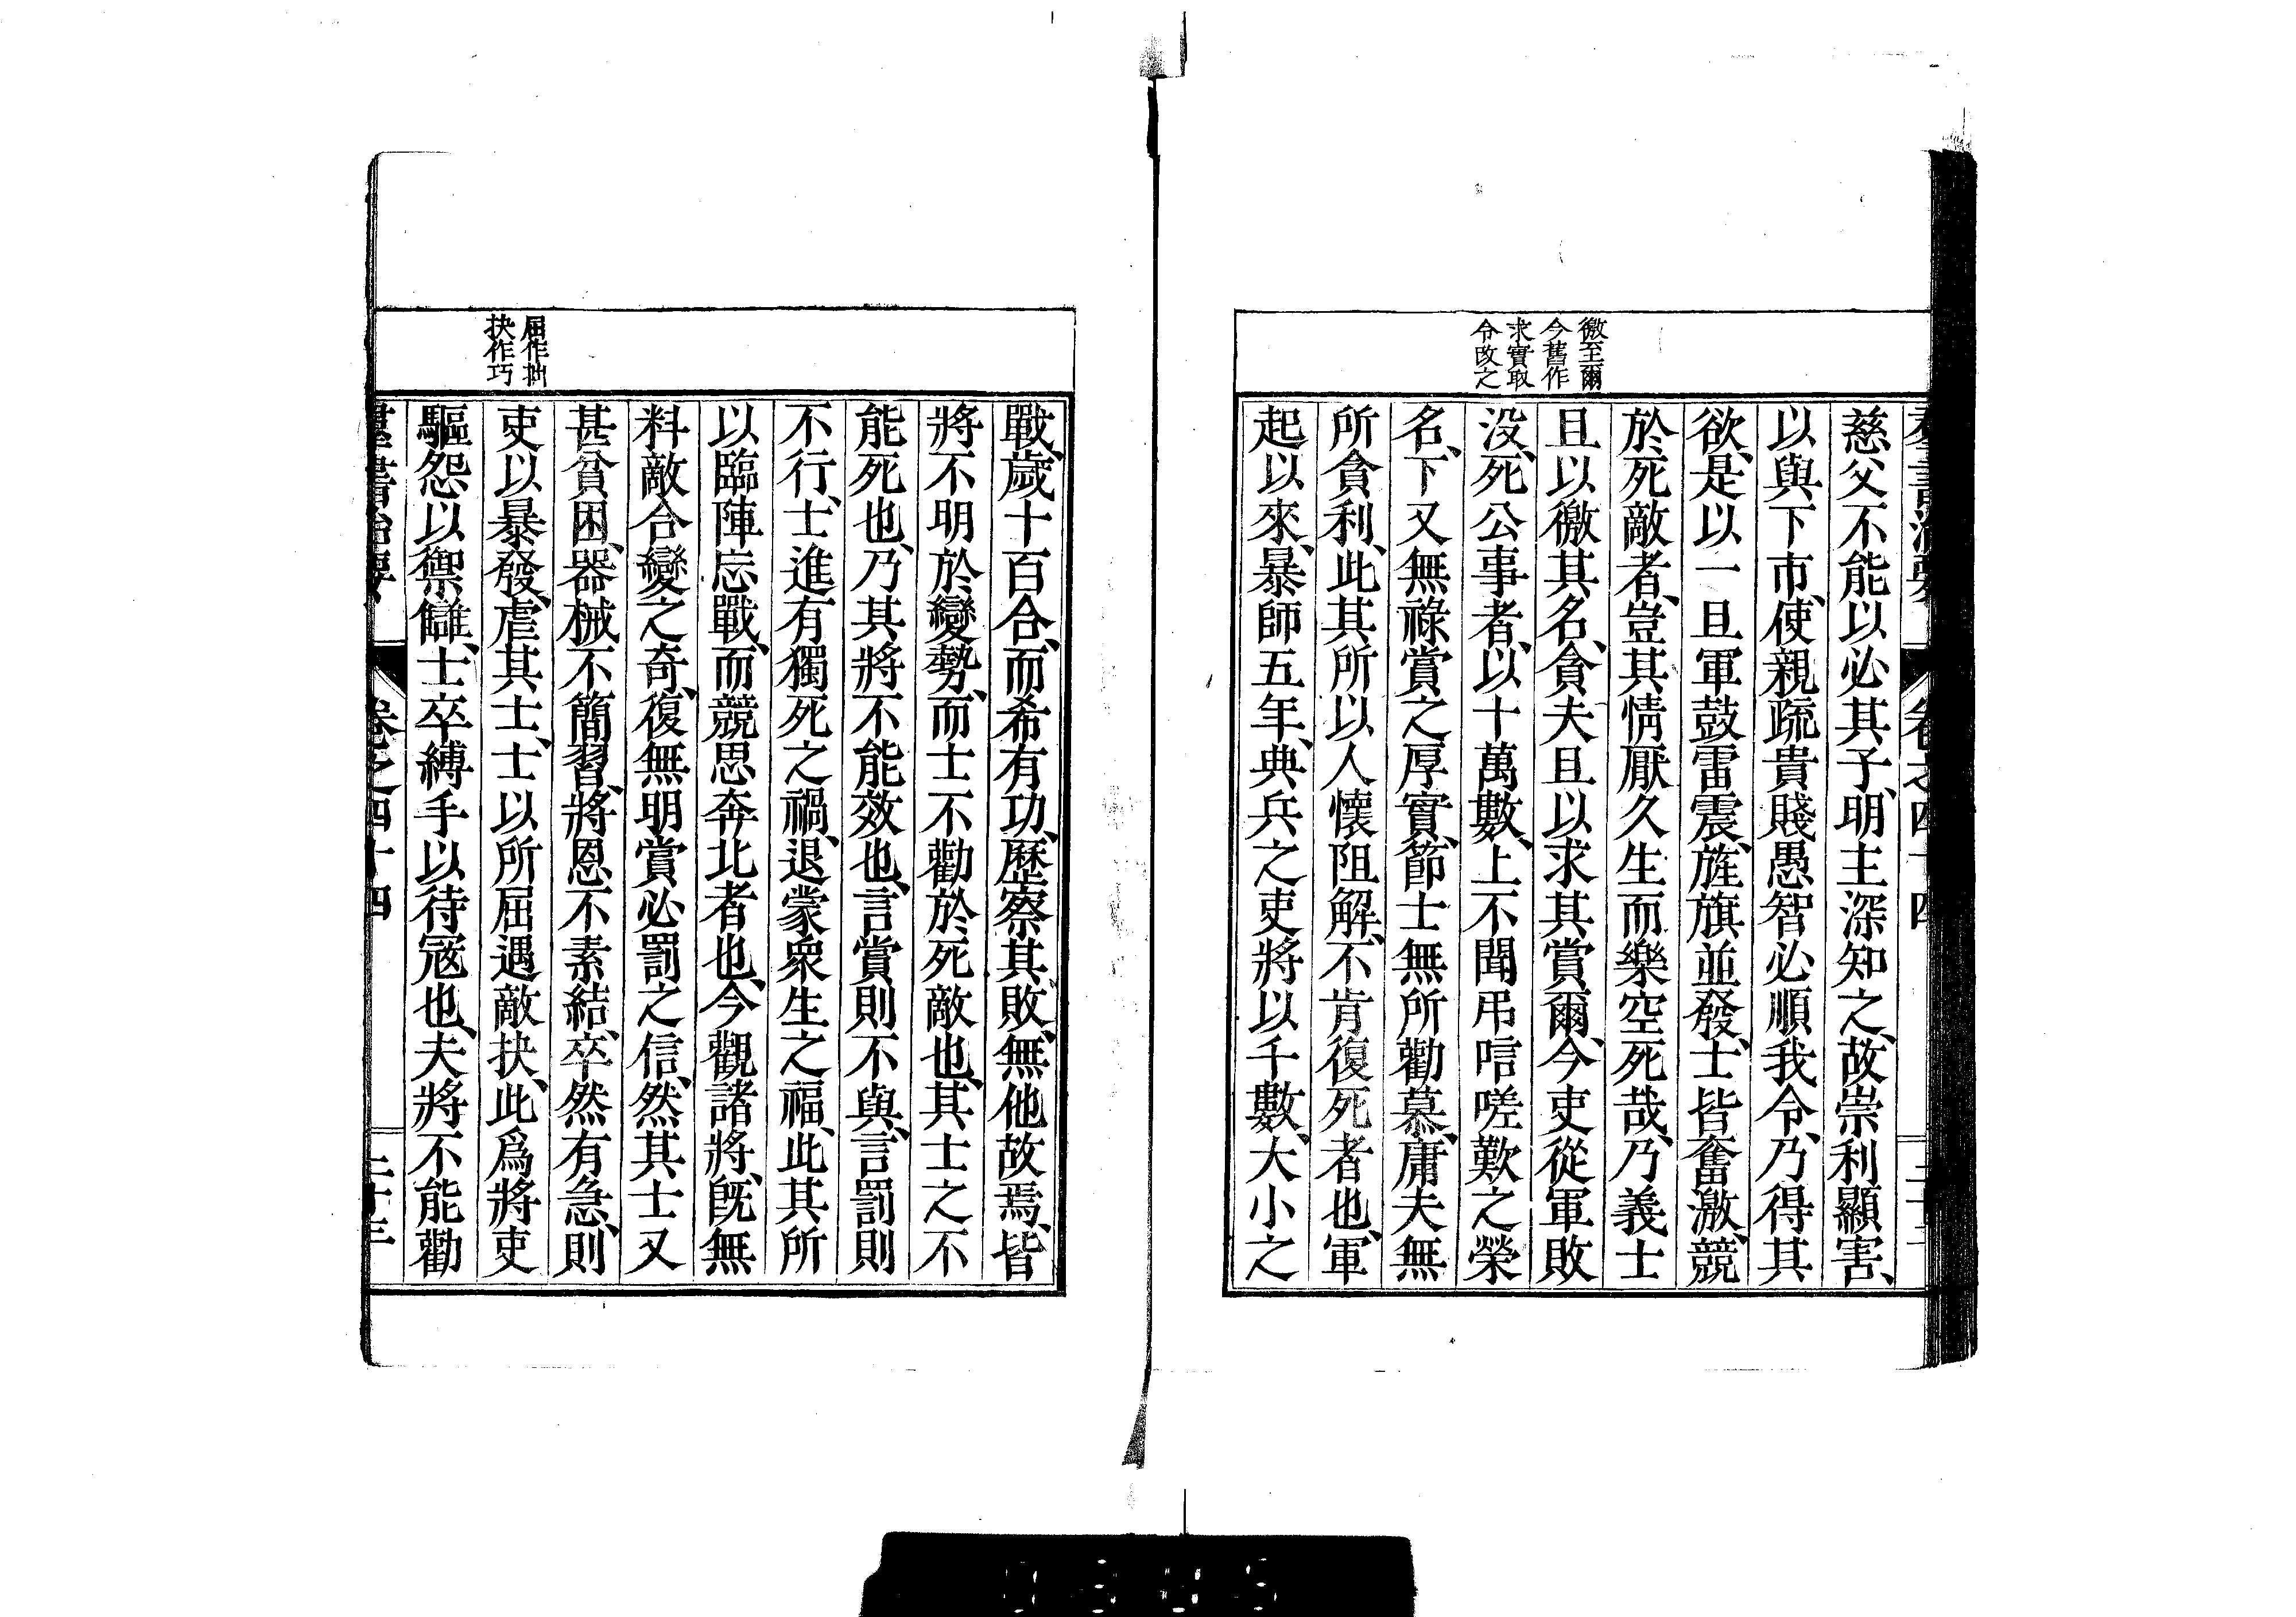 徼至爾
今舊作
求實取
令改之
羣書治要
卷之四十四
慈父不能以必其子、明主深知之、故崇利顯害、
以與下市、使親疏貴賤愚智必順我令、乃得其
欲、是以一旦軍鼓雷震、旌旗並發、士皆奮激、競
於死敵者、豈其情厭久生而樂空死哉、乃義士
且以徼其名、貪夫且以求其賞爾、今吏從軍敗
沒、死公事者、以十萬數、上不聞弔唁嗟歎之榮
名、下又無祿賞之厚實、節士無所勸慕、庸夫無
所貪利、此其所以人懷阻解、不肯復死者也、軍
起以來、暴師五年、典兵之吏將以千數、大小之
屈作拙
抉作巧
戰、歲十百合、而希有功、歷察其敗、無他故焉、皆
將不明於變勢、而士不勸於死敵也、其士之不
能死也、乃其將不能效也、言賞則不與、言罰則
不行、士進有獨死之禍、退蒙衆生之福、此其所
以臨陣忘戰、而競思奔北者也、今觀諸將、旣無
料敵合變之奇、復無明賞必罰之信、然其士又
甚貧困、器械不簡習、將恩不素結、卒然有急、則
吏以暴發、虐其士、士以所屈遇敵抉、此爲將吏
驅怨以禦讎、士卒縛手以待寇也、夫將不能勸
羣書治要
卷之四十四
二十三